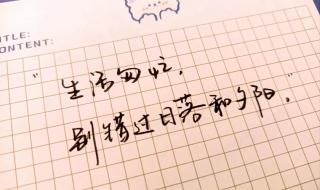 TITLE:
CONTENT:
"生活匆忙,
别错过日落和夕阳."